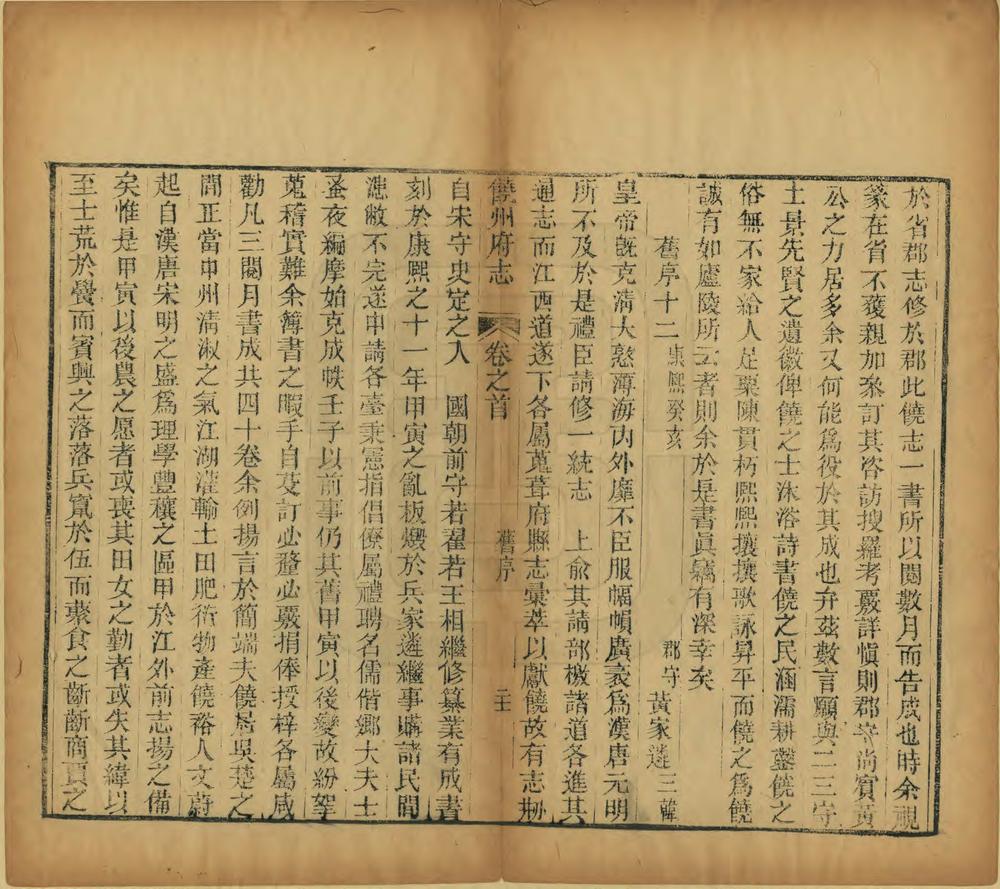 於省郡志修於郡此饒志一書所以閱數月而告成也時余視
篆在省不獲親加叅訂其咨訪搜羅考覈詳愼則郡守尚賓黃
公之力居多余又何能爲役於其成也弁茲數言願與二三守
土景先賢之遺徽俾饒之士沐浴詩書饒之民涵濡耕鑿饒之
俗無不家給人足粟陳貫朽熙熙攘攘歌詠昇平而饒之爲饒
誠有如廬陵所云者則余於是書眞竊有深幸矣
舊序十二 康熙癸亥 郡守 黃家遴 三韓
皇帝旣克淸大憝薄海內外靡不臣服幅幀廣袤爲漢唐元明
所不及於是禮臣請修一統志 上俞其請部檄諸道各進其
通志而江西道遂下各屬蒐葺府縣志彙萃以獻饒故有志刱
饒州府志 卷之首 舊序 二十
自宋守史定之入 國朝前守若翟若王相繼修纂業有成書
刻於康熙之十一年甲寅之亂板燬於兵家遴繼事購諸民間
漶敝不完遂申請各臺秉憲指倡僚屬禮聘名儒偕鄉大夫士
蚤夜編摩始克成帙壬子以前事仍其舊甲寅以後變故紛挐
蒐稽實難余簿書之暇手自芟訂必釐必覈捐俸授梓各屬咸
勸凡三閱月書成共四十卷余例揚言於簡端夫饒居吳楚之
間正當中州淸淑之氣江湖灌輸土田肥衍物產饒裕人文蔚
起自漢唐宋明之盛爲理學豐穰之區甲於江外前志揚之備
矣惟是甲寅以後農之愿者或喪其田女之勤者或失其緯以
至士荒於黌而賓興之落落兵竄於伍而素食之齗齗商賈之